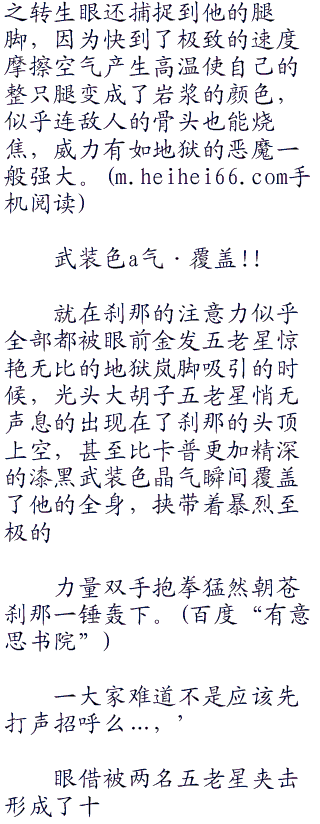 之转生眼还捕捉到他的腿
脚，因为快到了极致的速度
摩擦空气产生高温使自己的
整只腿变成了岩浆的颜色，
似乎连敌人的骨头也能烧
焦，威力有如地狱的恶魔一
般强大。(m.heihei66.com手
机阅读)
武装色a气·覆盖!!
就在刹那的注意力似乎
全部都被眼前金发五老星惊
艳无比的地狱岚脚吸引的时
候，光头大胡子五老星悄无
声息的出现在了刹那的头顶
上空，甚至比卡普更加精深
的漆黑武装色晶气瞬间覆盖
了他的全身，挟带着暴烈至
极的
力量双手抱拳猛然朝苍
刹那一锤轰下。(百度“有意
思书院”)
一大家难道不是应该先
打声招呼么…，’
眼借被两名五老星夹击
形成了十